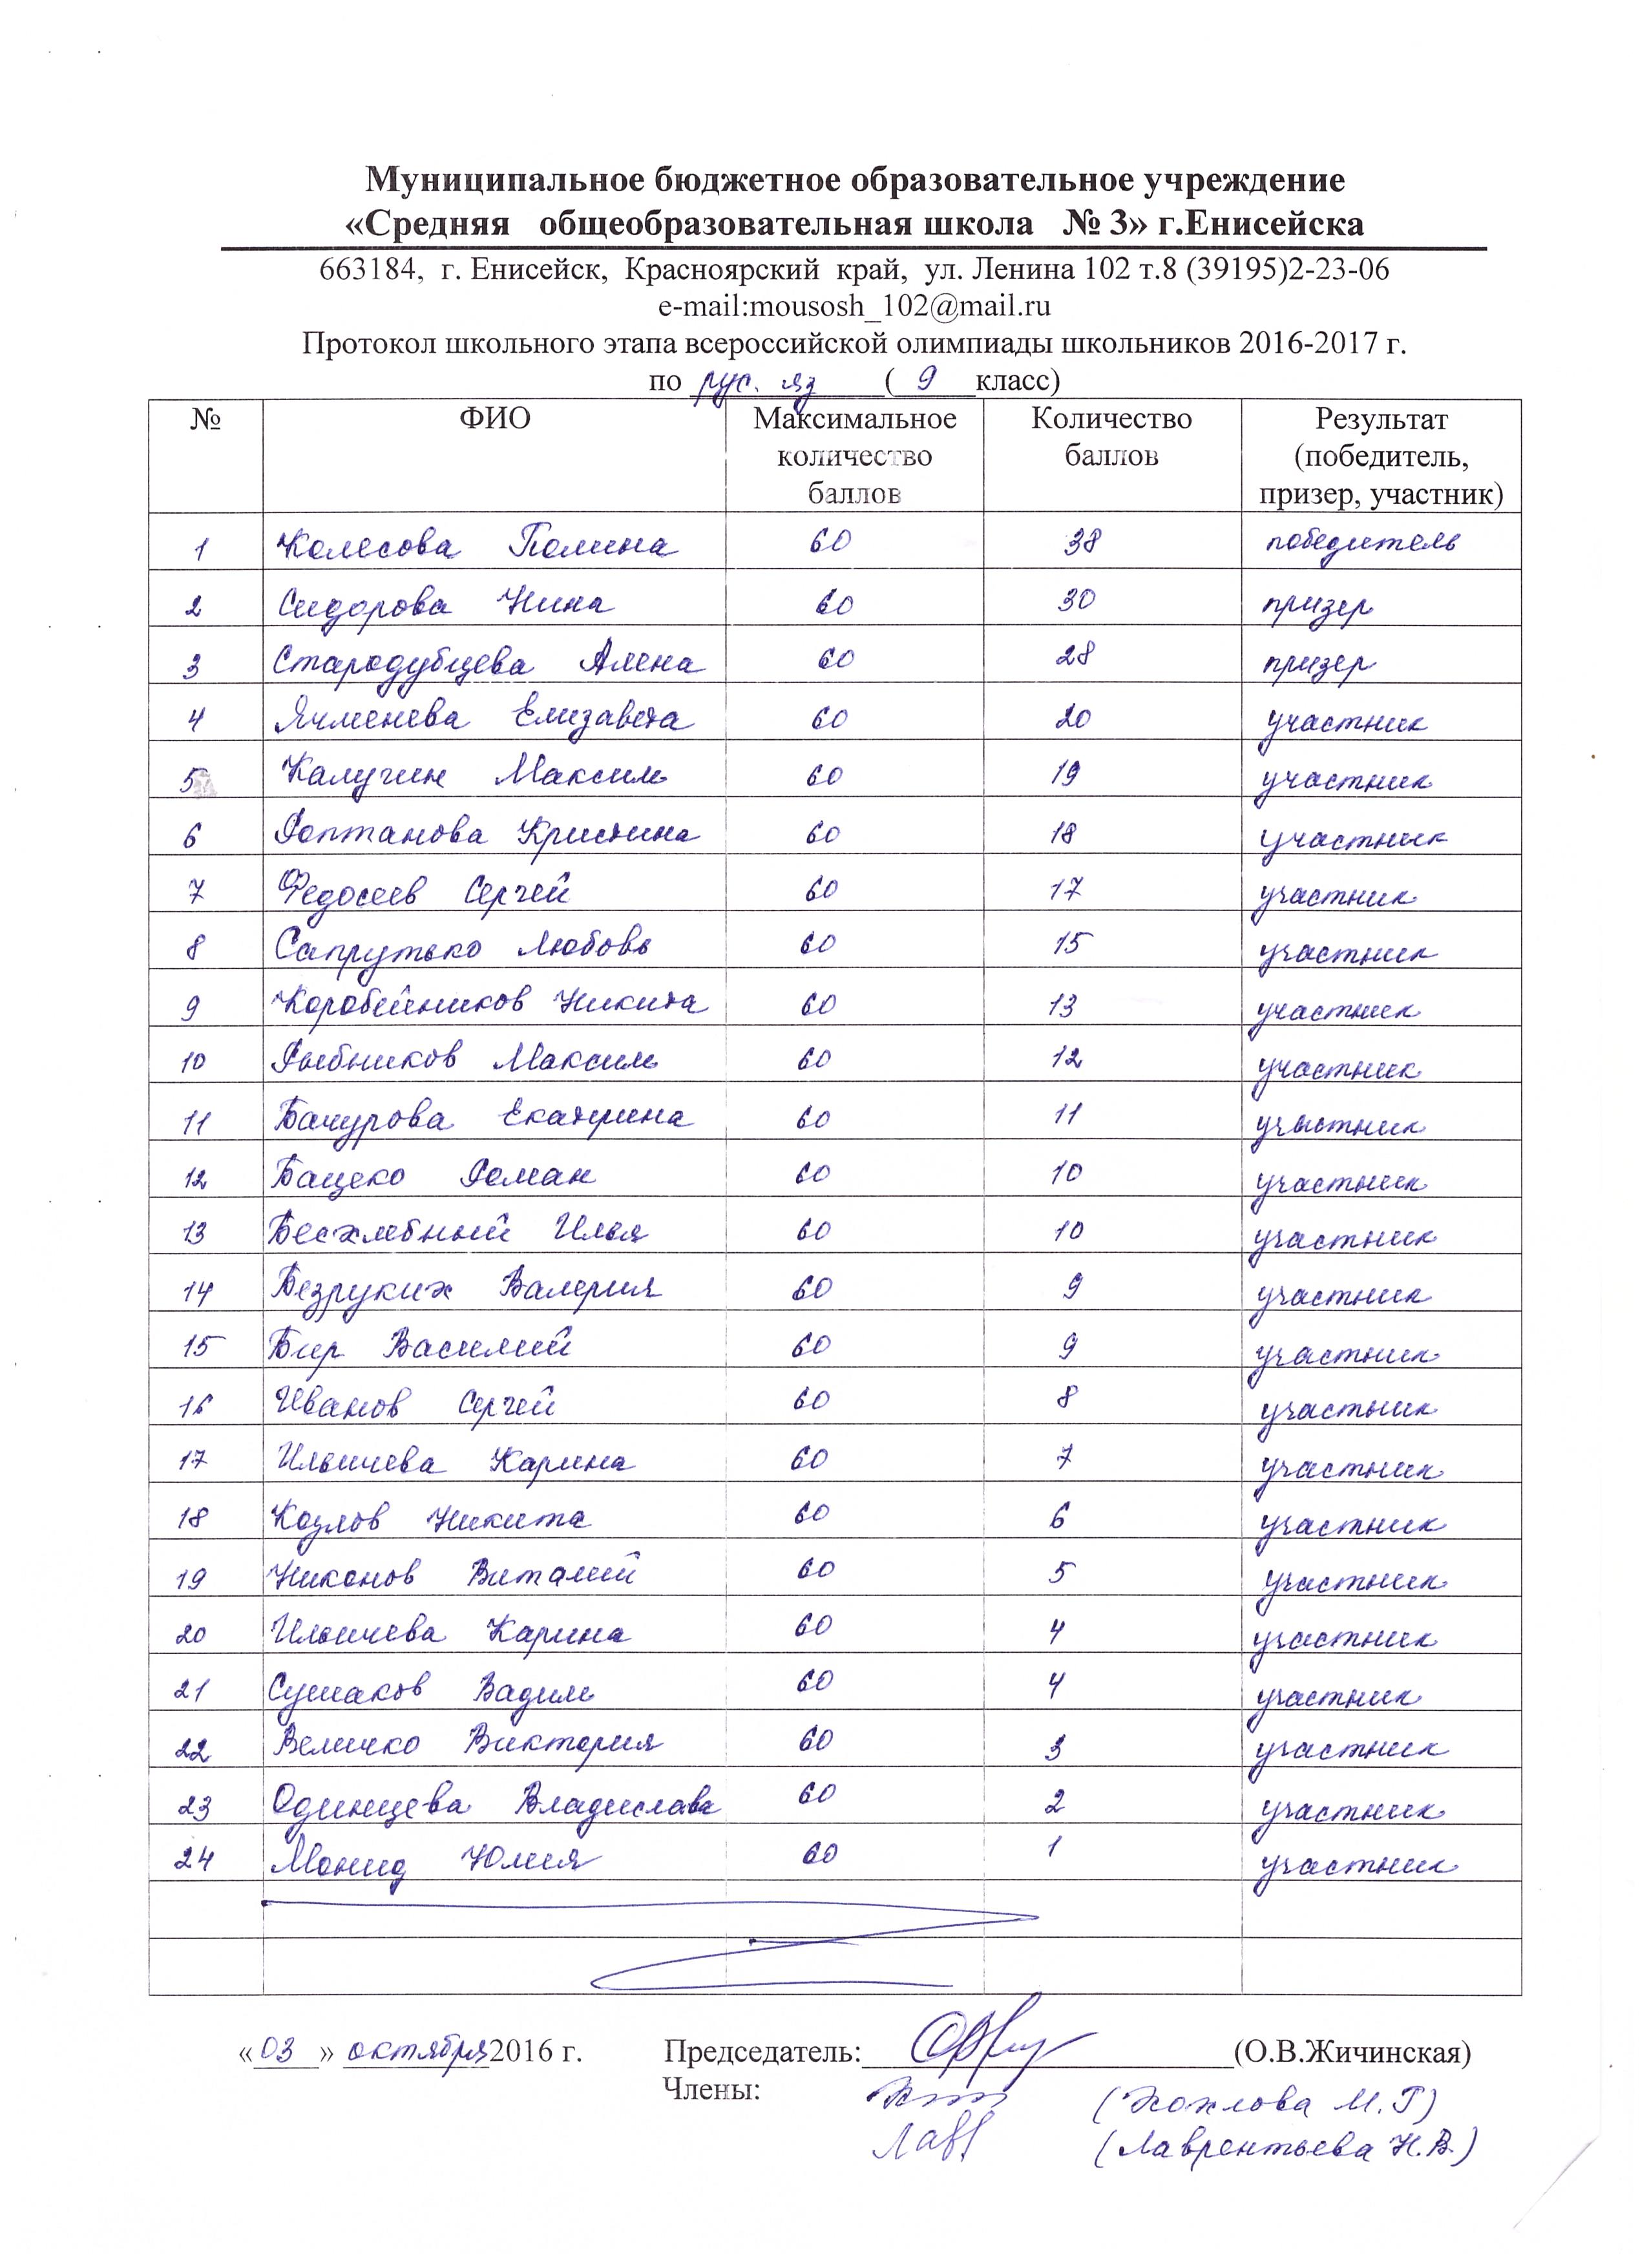 Муниципальное бюджетное образовательное учреждение
«Средняя общеобразовательная школа № 3» г.Енисейска
663184, г. Енисейск, Красноярский край, ул. Ленина 102 т.8 (39195)2-23-06
e-mail:mousosh_102@mail.ru
Протокол школьного этапа всероссийской олимпиады школьников 2016-2017 г.
по рус. яз (9 класс)
№ ФИО Максимальное количество баллов Количество баллов Результат (победитель, призер, участник)
1 Колесова Полина 60 38 победитель
2 Сидорова Нина 60 30 призер
3 Стародубцева Алена 60 28 призер
4 Ячменева Елизавета 60 20 участник
5 Калугин Максим 60 19 участник
6 Роптанова Кристина 60 18 участник
7 Федосеев Сергей 60 17 участник
8 Сапрутько Любовь 60 15 участник
9 Коробейников Никита 60 13 участник
10 Рыбников Максим 60 12 участник
11 Бачурова Екатерина 60 11 участник
12 Бацеко Роман 60 10 участник
13 Бесхлебный Илья 60 10 участник
14 Безруких Валерия 60 9 участник
15 Бир Василий 60 9 участник
16 Иванов Сергей 60 8 участник
17 Ильичева Карина 60 7 участник
18 Козлов Никита 60 6 участник
19 Никонов Виталий 60 5 участник
20 Ильичева Карина 60 4 участник
21 Сушаков Вадим 60 4 участник
22 Величко Виктория 60 3 участник
23 Одинцева Владислава 60 2 участник
24 Монид Юлия 60 1 участник
«03» октября 2016 г. Председатель: (О.В.Жичинская)
Члены: (Хохлова М.Г)
(Лаврентьева Н.В.)